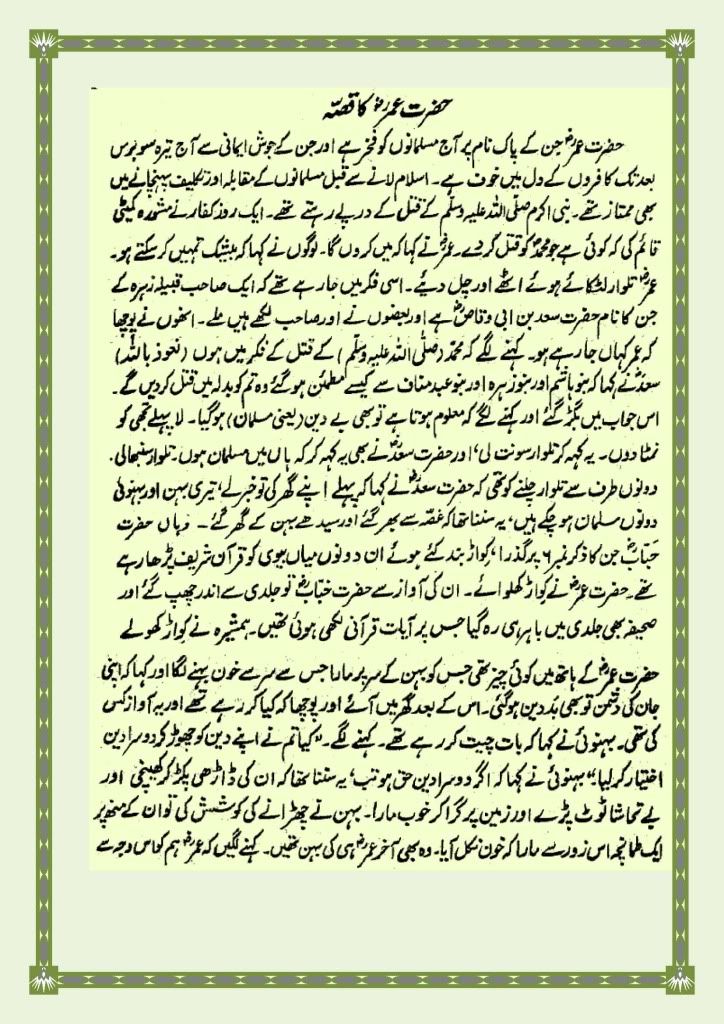 حضرت عمرؓ کا قصّہ
حضرت عمرؓ جن کے پاک نام پر آج مسلمانوں کو فخر ہے اور جن کے جوش ایمانی سے آج تیرہ سو برس
بعد تک کافروں کے دل میں خوف ہے۔ اسلام لانے سے قبل مسلمانوں کے مقابلہ اور تکلیف پہنچانے میں
بھی ممتاز تھے۔ نبی اکرم صلّی اللہ علیہ وسلّم کے قتل کے درپے رہتے تھے۔ ایک روز کفار نے مشورہ کمیٹی
قائم کی کہ کوئی ہے جو محمدؐ کو قتل کر دے۔ عمرؓ نے کہا کہ میں کروں گا۔ لوگوں نے کہا کہ بیشک تمہیں کر سکتے ہو۔
عمرؓ تلوار لٹکائے ہوئے اٹھے اور چل دیئے۔ اسی فکر میں جا رہے تھے کہ ایک صاحب قبیلہ زہرہ کے
جن کا نام حضرت سعد بن ابی وقاصؓ ہے اور بعضوں نے اور صاحب لکھے ہیں ملے۔ انھوں نے پوچھا
کہ عمر کہاں جا رہے ہو۔ کہنے لگے کہ محمّد (صلّی اللہ علیہ وسلّم) کے قتل کے فکر میں ہوں (نعوذ باللہ)
سعدؓ نے کہا کہ بنو ہاشم اور بنو زہرہ اور بنو عبد مناف سے کیسے مطمئن ہو گئے وہ تم کو بدلہ میں قتل کر دیں گے۔
اس جواب میں بگڑ گئے اور کہنے لگے کہ معلوم ہوتا ہے تو بھی بے دین (یعنی مسلمان) ہو گیا۔ لا پہلے تجھی کو
نمٹا دوں۔ یہ کہہ کر تلوار سونت لی، اور حضرت سعدؓ نے بھی یہ کہہ کر کہ ہاں میں مسلمان ہوں۔ تلوار سنبھالی۔
دونوں طرف سے تلوار چلنے کو تھی کہ حضرت سعدؓ نے کہا کہ پہلے اپنے گھر کی تو خبر لے، تیری بہن اور بہنوئی
دونوں مسلمان ہو چکے ہیں، یہ سننا تھا کہ غصّہ سے بھر گئے اور سیدھے بہن کے گھر گئے۔ وہاں حضرت
خبّابؓ جن کا ذکر نمبر ۶ پر گذرا، کواڑ بند کئے ہوئے ان دونوں میاں بیوی کو قرآن شریف پڑھا رہے
تھے۔ حضرت عمرؓ نے کواڑ کھلوائے۔ ان کی آواز سے حضرت خبّابؓ تو جلدی سے اندر چھپ گئے اور
صحیفہ بھی جلدی میں باہر ہی رہ گیا جس پر آیات قرآنی لکھی ہوئی تھیں۔ ہمشیرہ نے کواڑ کھولے
حضرت عمرؓ کے ہاتھ میں کوئی چیز تھی جس کو بہن کے سر پر مارا جس سے سر سے خون بہنے لگا اور کہا کہ اپنی
جان کی دشمن تو بھی بد دین ہو گئی۔ اس کے بعد گھر میں آئے اور پوچھا کہ کیا کر رہے تھے اور یہ آواز کس
کی تھی۔ بہنوئی نے کہا کہ بات چیت کر رہے تھے۔ کہنے لگے۔ "کیا تم نے اپنے دین کو چھوڑ کر دوسرا دین
اختیار کر لیا" بہنوئی نے کہا کہ اگر دوسرا دین حق ہو تب، یہ سننا تھا کہ ان کی ڈاڑھی پکڑ کر کھینچی اور
بے تحاشا ٹوٹ پڑے اور زمین پر گرا کر خوب مارا۔ بہن نے چھڑانے کی کوشش کی تو ان کے منھ پر
ایک طمانچہ اس زور سے مارا کہ خون نکل آیا۔ وہ بھی آخر عمرؓ ہی کی بہن تھیں۔ کہنے لگیں کہ عمرؓ ہم کو اس وجہ سے